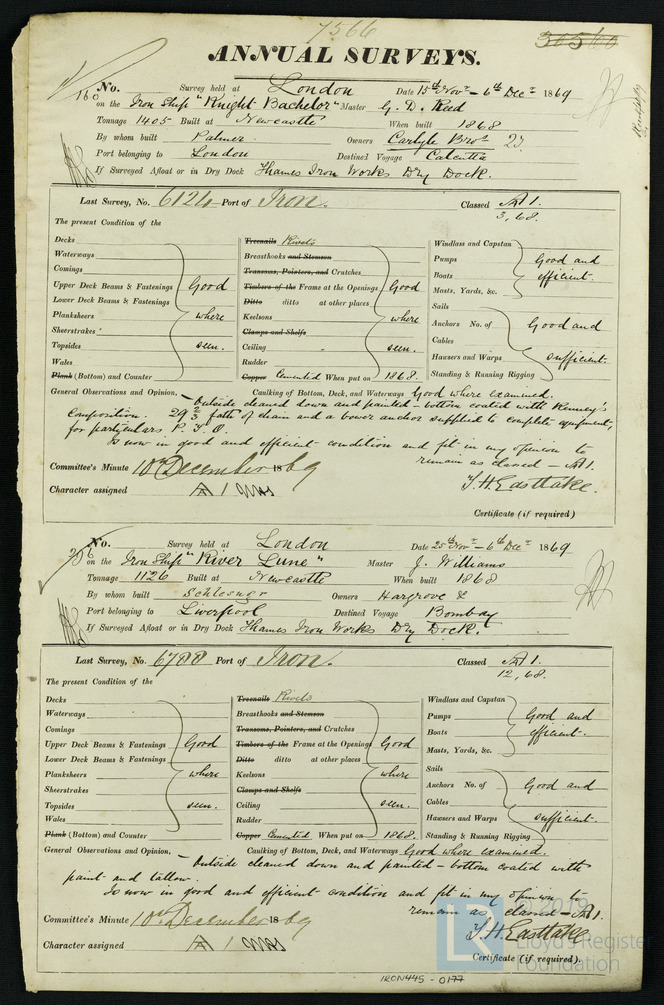 7566
ANNUAL SURVEYS.
No. Survey held at London Date 15th Novr - 6th Decr 1869
on the Iron Ship "Knight Bachelor" Master G. D. Reed
Tonnage 1405 Built at Newcastle When built 1868
By whom built Palmer Owners Carlyle Bros
Port belonging to London Destined Voyage Calcutta
If Surveyed Afloat or in Dry Dock Thames Iron Works Dry Dock.
Last Survey, No. 6124 Port of Iron. Classed A1.
3,68.
The present Condition of the
Decks
Waterways
Comings
Upper Deck Beams & Fastenings Good
Lower Deck Beams & Fastenings
Planksheers where
Sheerstrakes
Topsides seen.
Wales
Plank (Bottom) and Counter
Treenails Rivets
Breasthooks and Stemson
Transoms, Pointers, and Crutches
Timbers of the Frame at the Openings Good
Ditto ditto at other places
Keelsons where
Clamps and Shelfs
Ceiling seen.
Rudder
Copper Cemented When put on 1868.
Windlass and Capstan
Pumps Good and
Boats efficient.
Masts, Yards, &c.
Sails
Anchors No. of Good and
Cables
Hawsers and Warps sufficient.
Standing & Running Rigging
General Observations and Opinion, Caulking of Bottom, Deck, and Waterways Good where examined.
Outside cleaned down and painted - bottom coated with
Composition. of chain and a bower anchor supplied to complete equipment,
for particulars P. T. O.
Is now in good and efficient condition and fit in my opinion to
remain as classed - A1.
Committee's Minute 10th December 1869
Character assigned A 1 T. H. Easttake.
Certificate (if required)
No. Survey held at London Date 25th Novr - 6th Decr 1869
on the Iron Ship "River Lune" Master J. Williams
Tonnage 1126 Built at Newcastle When built 1868
By whom built Owners Hargrove &
Port belonging to Liverpool Destined Voyage Bombay
If Surveyed Afloat or in Dry Dock Thames Iron Works Dry Dock.
Last Survey, No. 6788 Port of Iron. Classed A1.
12,68.
The present Condition of the
Decks
Waterways
Comings
Upper Deck Beams & Fastenings Good
Lower Deck Beams & Fastenings
Planksheers where
Sheerstrakes
Topsides seen.
Wales
Plank (Bottom) and Counter
Treenails Rivets
Breasthooks and Stemson
Transoms, Pointers, and Crutches
Timbers of the Frame at the Openings Good
Ditto ditto at other places
Keelsons where
Clamps and Shelfs
Ceiling seen.
Rudder
Copper Cemented When put on 1868.
Windlass and Capstan
Pumps Good and
Boats efficient.
Masts, Yards, &c.
Sails
Anchors No. of Good and
Cables
Hawsers and Warps sufficient.
Standing & Running Rigging
General Observations and Opinion, Caulking of Bottom, Deck, and Waterways Good where examined.
Outside cleaned down and painted - bottom coated with
paint and tallow.
Is now in good and efficient condition and fit in my opinion to
remain as classed - A1.
Committee's Minute 10th December 1869
Character assigned A 1 T. H. Easttake
Certificate (if required).
© 2019
LR Lloyd's Register
Foundation
IRON445-0177